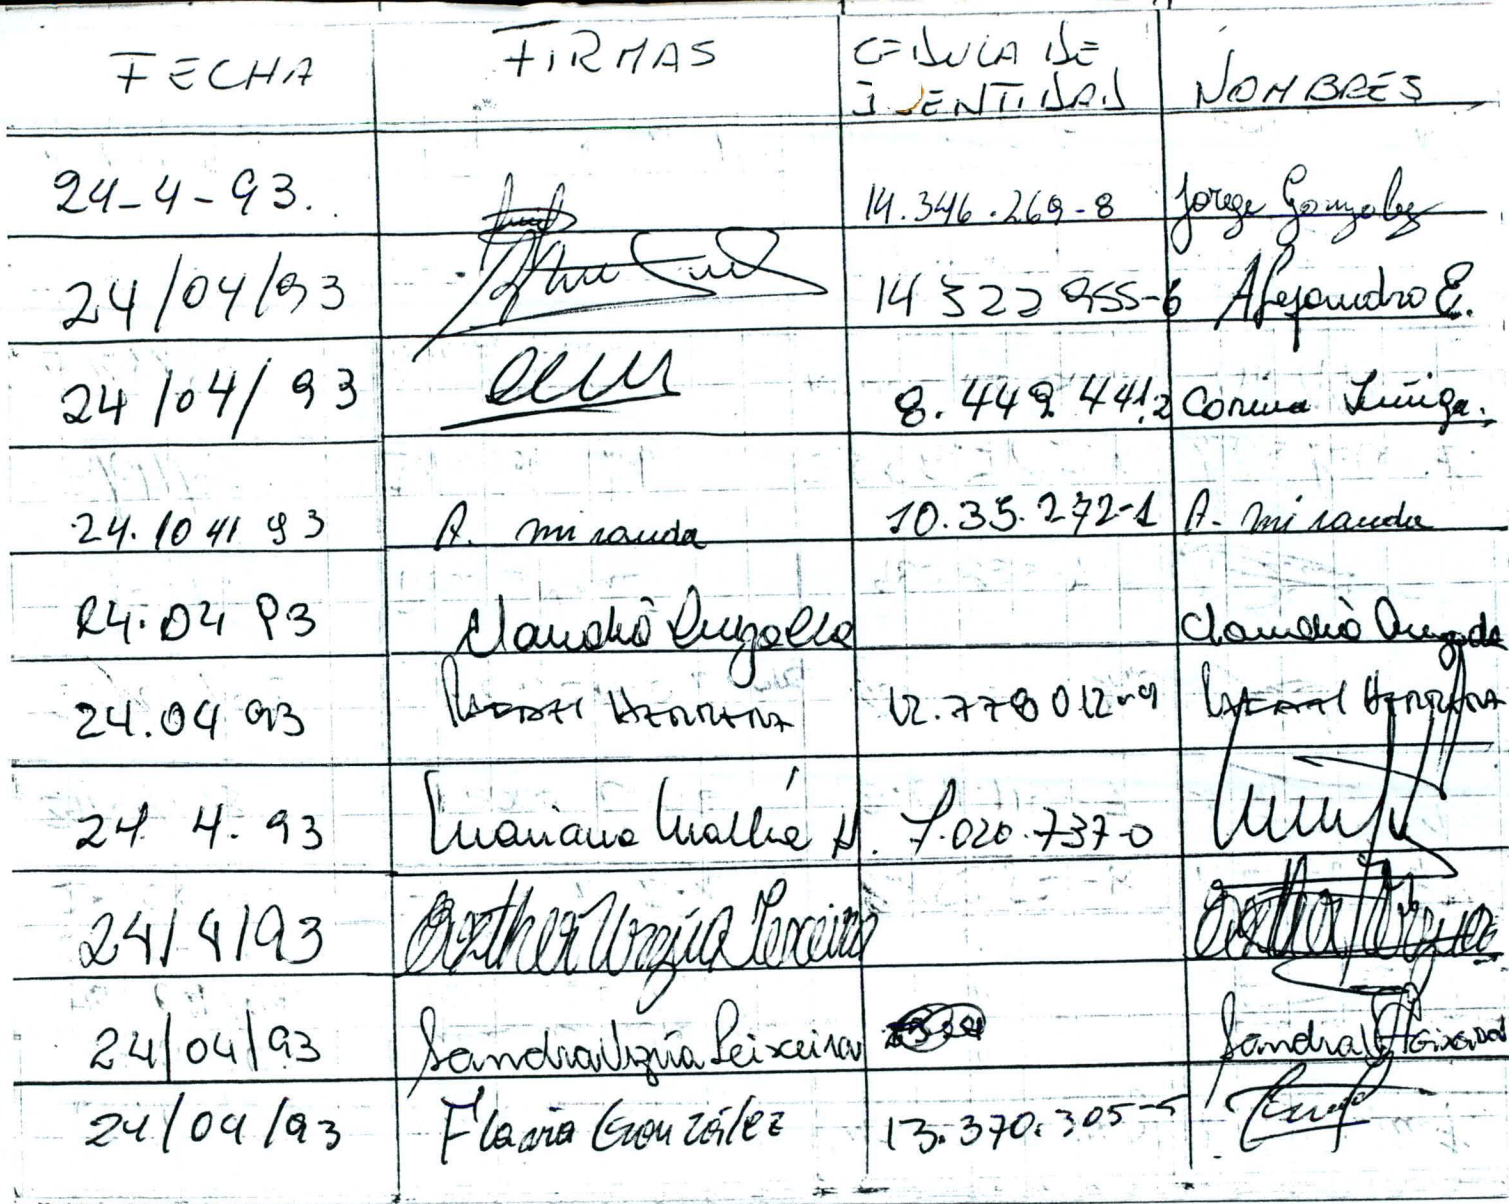 FECHA FIRMAS CEDULA DE IDENTIDAD NOMBRES
24-4-93. 14.346.269-8 Jorge Gonzalez
24/04/93 14 322 955-6 Alejandro E.
24/04/93 8.449 441-2 Corina Zuñiga.
24.10 41 93 A. miranda 10.35.272-1 A. miranda
24.04 93 Claudio Claudio
24.04 93 HERRERA 12.778012-9 HERRERA
24 4. 93 Mariana Mallea H. 7.020.737-0
24/4/93 Esther Urzúa Teixeira Esther Urzúa
24/04/93 Sandra Urzúa Teixeira Sandra Teixeira
24/04/93 Flavia González 13.370.305-5